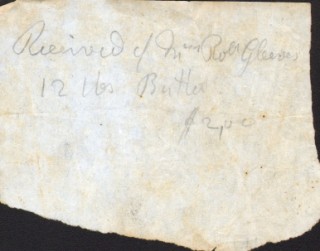 Received of Mrs Robt Gleaves
12 lbs Butter
$2,00